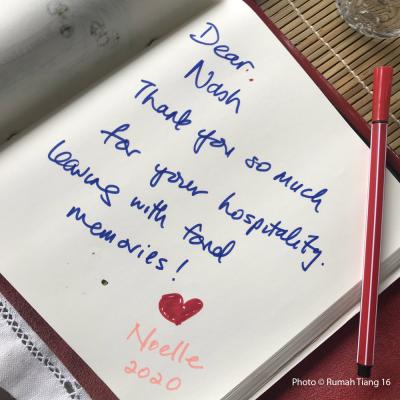 Dear.
Nash
Thank you so much
for your hospitality.
leaving with fond
memories!
Noelle
2020
Photo © Rumah Tiang 16